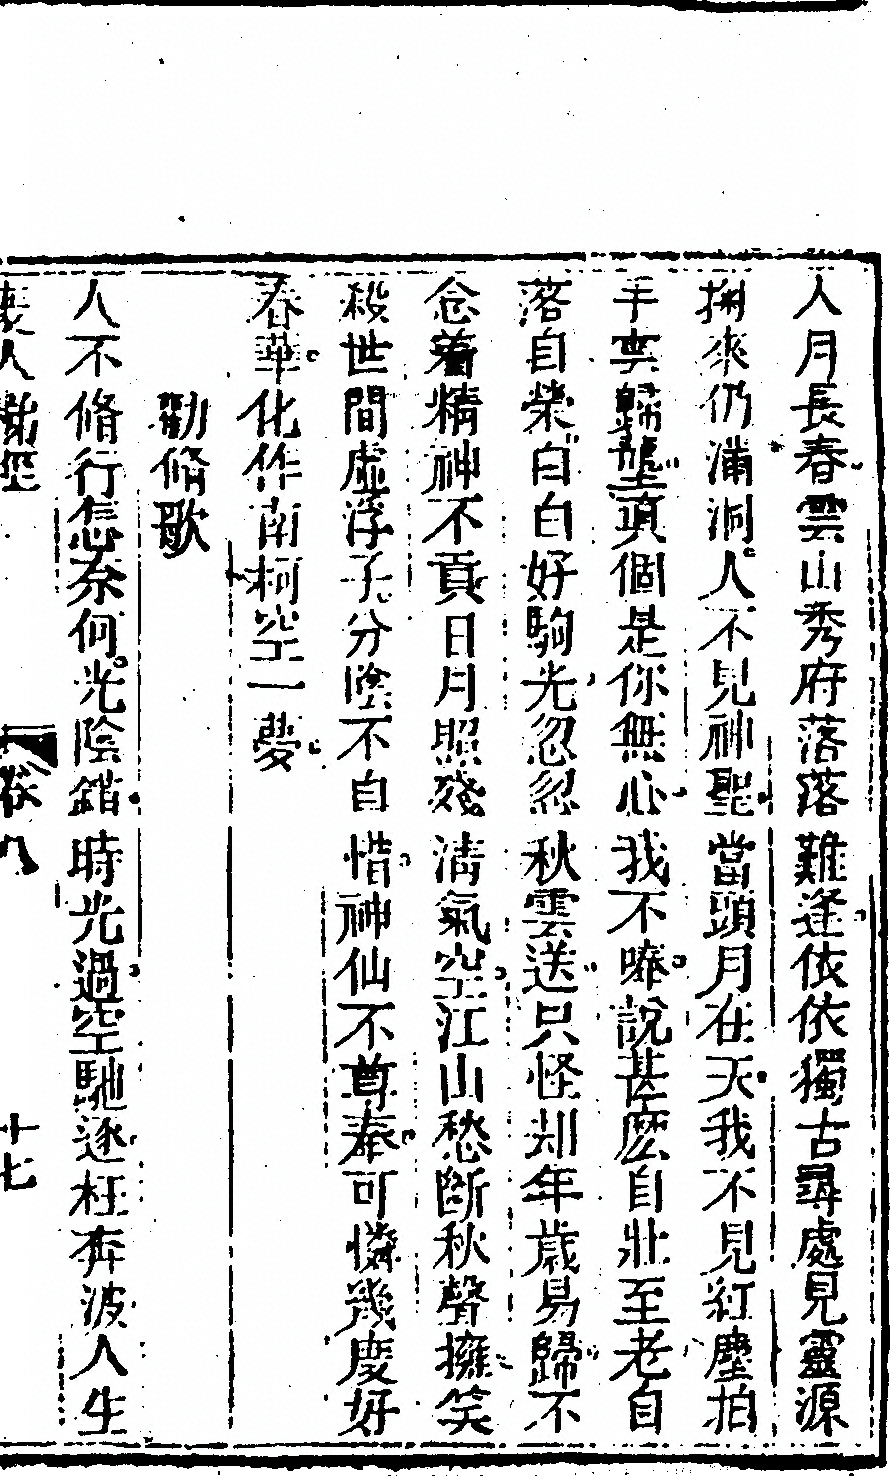 人月長春雲山秀府落落難逢依依獨古尋處見靈源
掬來仍滿洞人不見神聖當頭月在天我不見紅塵拍
手辜歸壟真個是你無心我不嗪說甚麽自壯至老自
落自榮白白好駒光忽忽秋雲送只怪刦年歲易歸不
念着精神不貢日月照殘淸氣空江山愁斷秋聲擁笑
殺世間虛浮子分陰不自惜神仙不尊奉可憐幾度好
春華化作南柯空一夢
勸脩歌
人不脩行怎柰何光陰錯時光過空馳逐枉奔波人生
卷九
十七